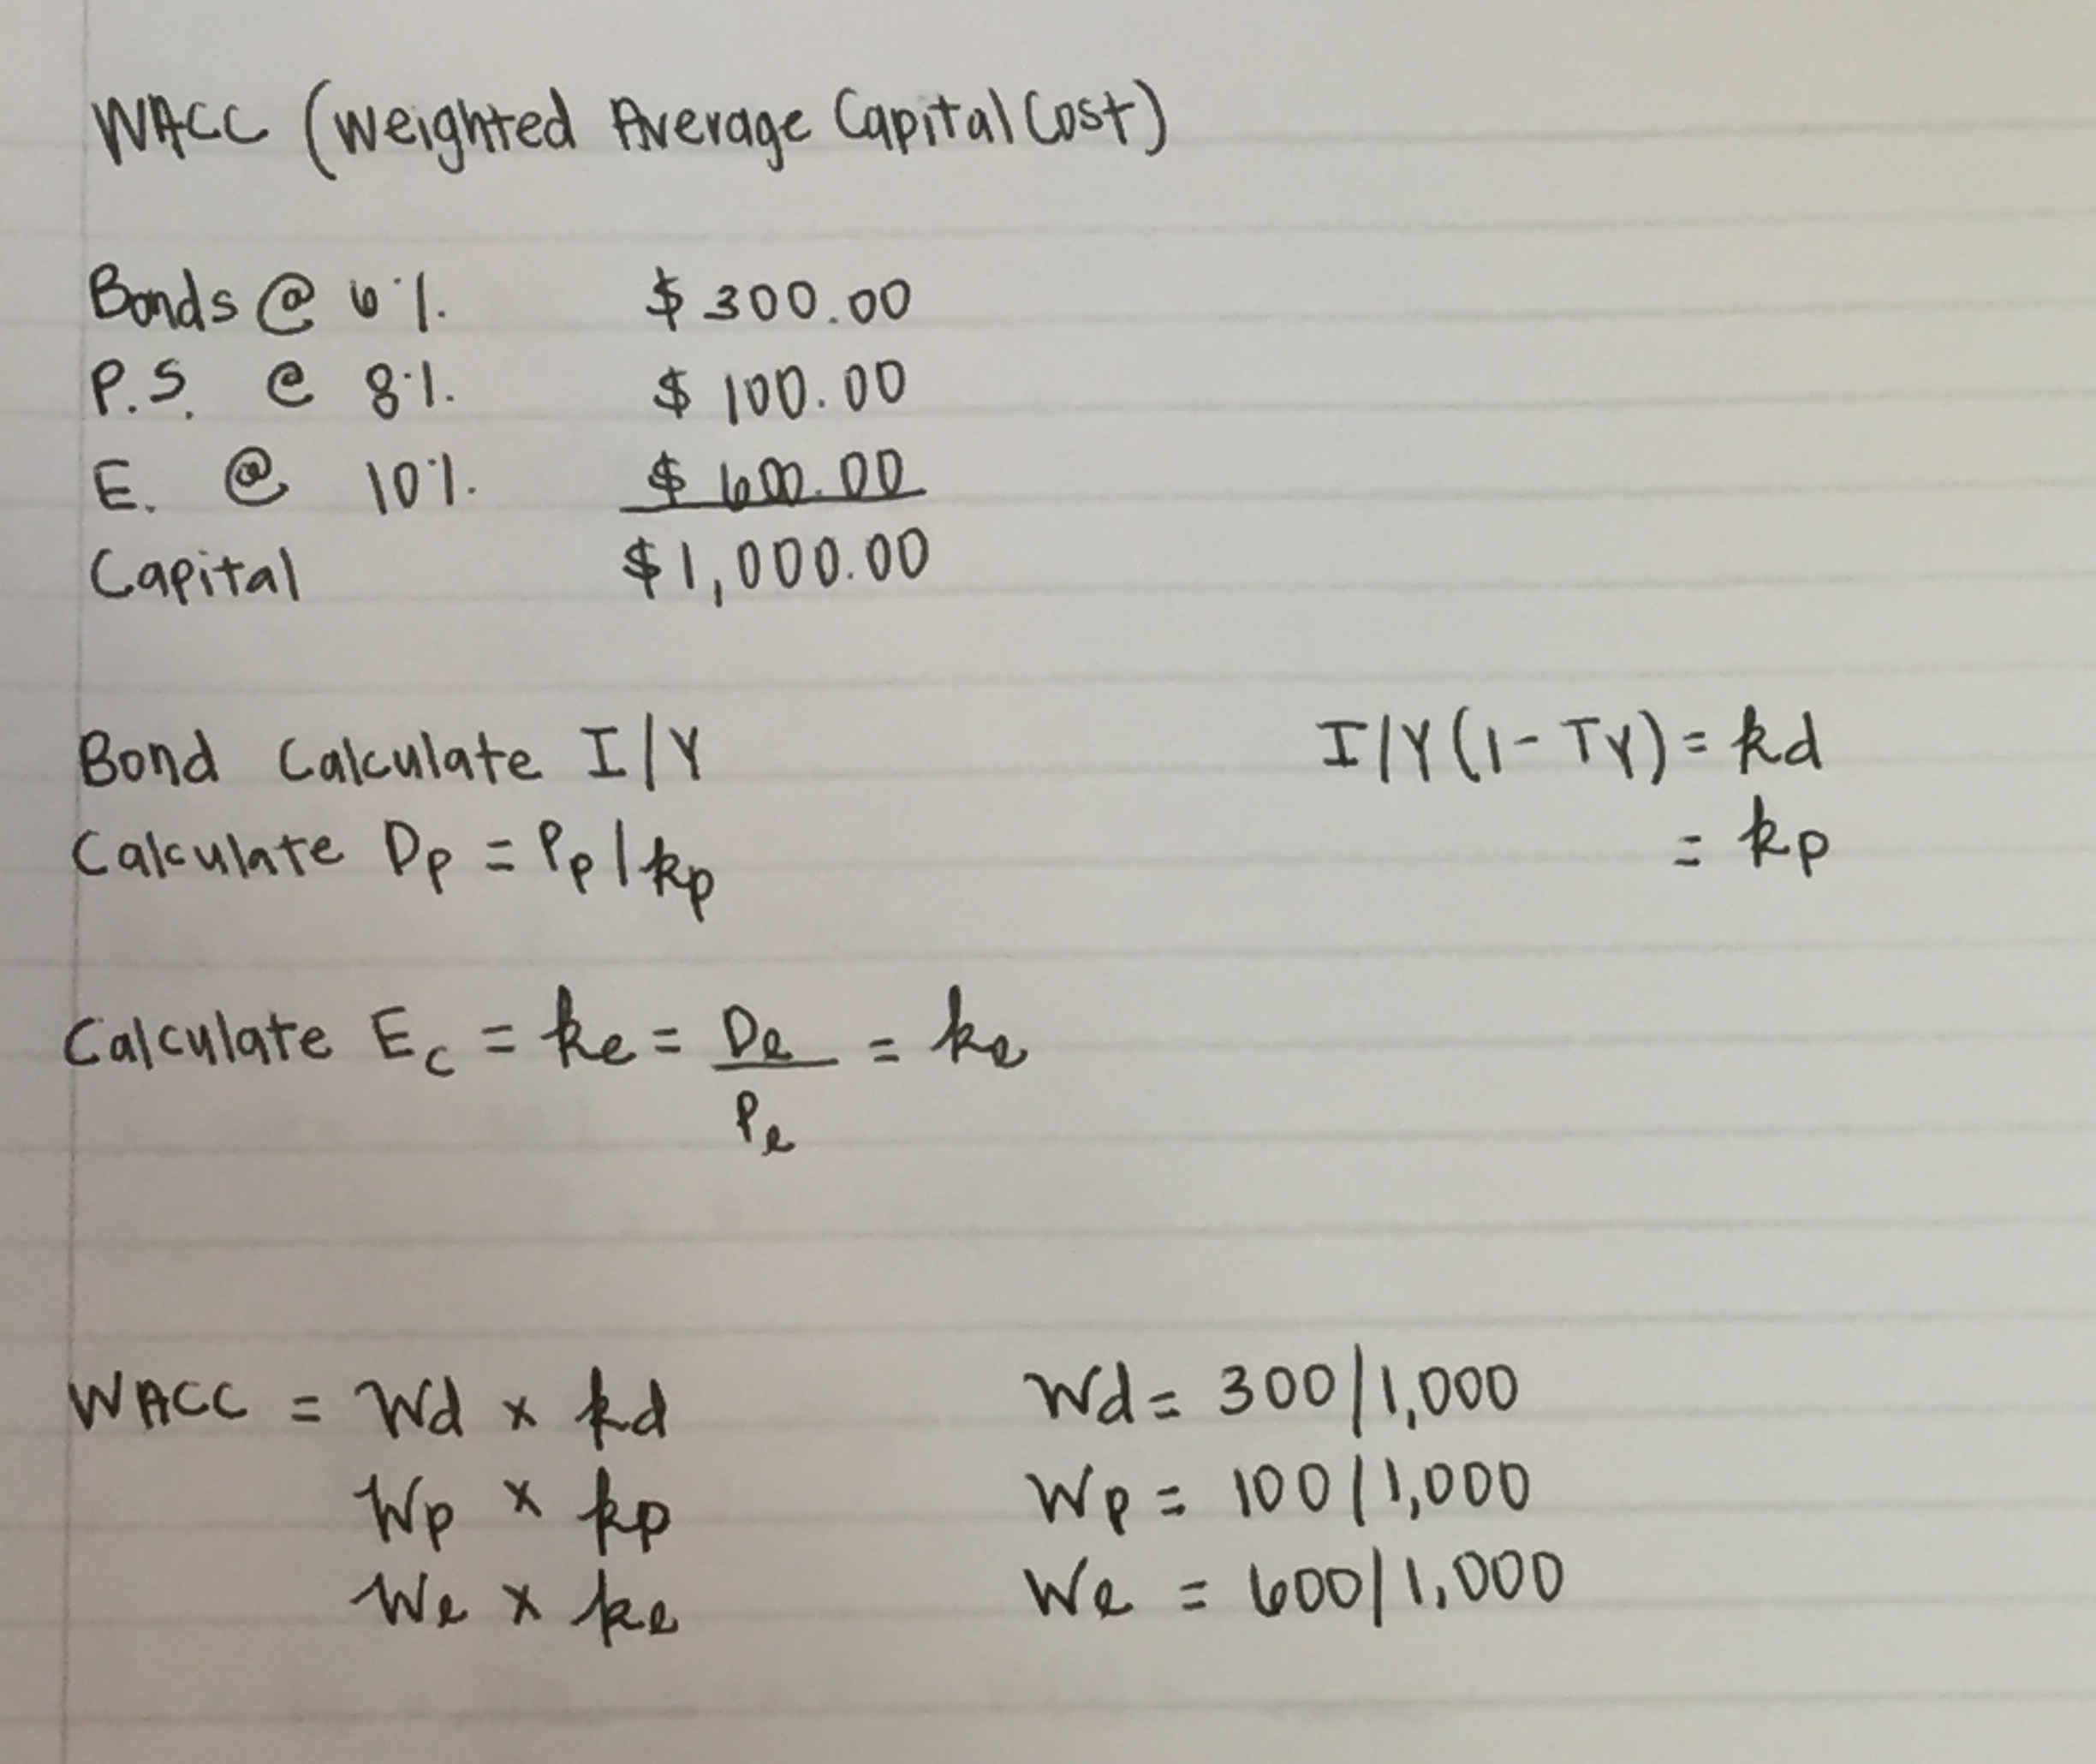 WACC (Weighted Average Capital Cost)
Bonds @ 6% $300.00
P.S. @ 8% $100.00
E. @ 10% $600.00
Capital $1,000.00
Bond Calculate I/Y I/Y(1-TY)=kd
Calculate Dp = Pp/kp = kp
Calculate Ec = ke = De/Pe = ke
WACC = Wd x kd Wd = 300/1,000
Wp x kp Wp = 100/1,000
We x ke We = 600/1,000